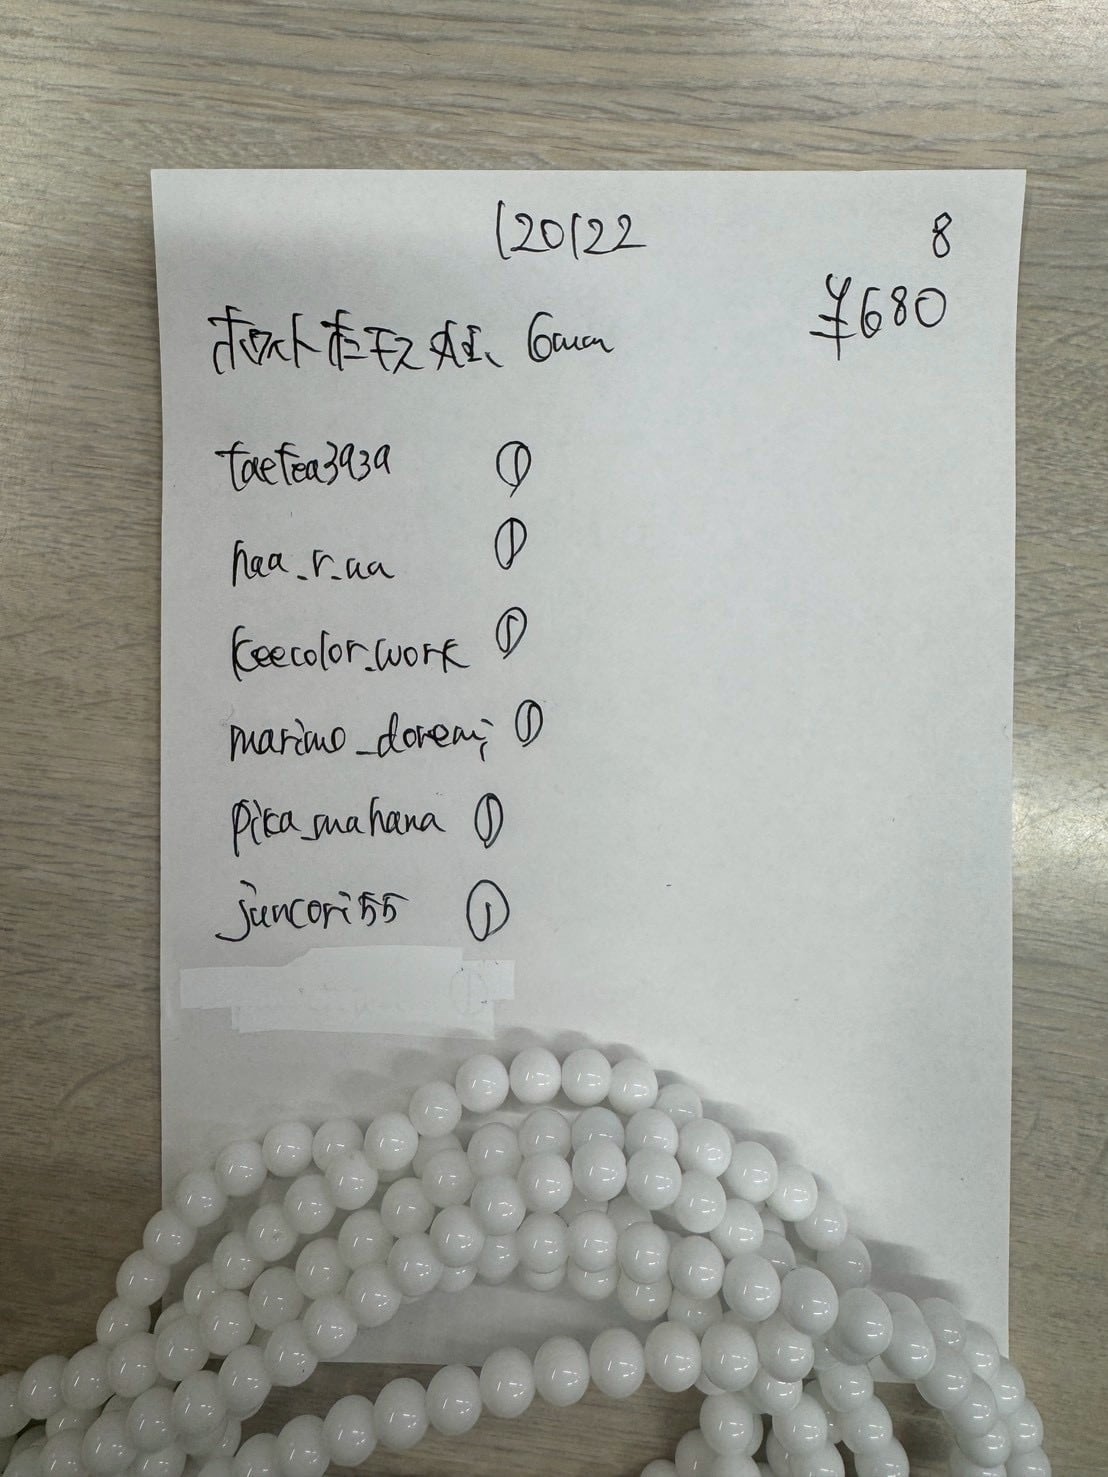 120122
8
¥680
6mm
taetea3939 ①
haa_r_aa ①
keecolor_work ①
marimo_doremi ①
pika_mahana ①
juncori55 ①